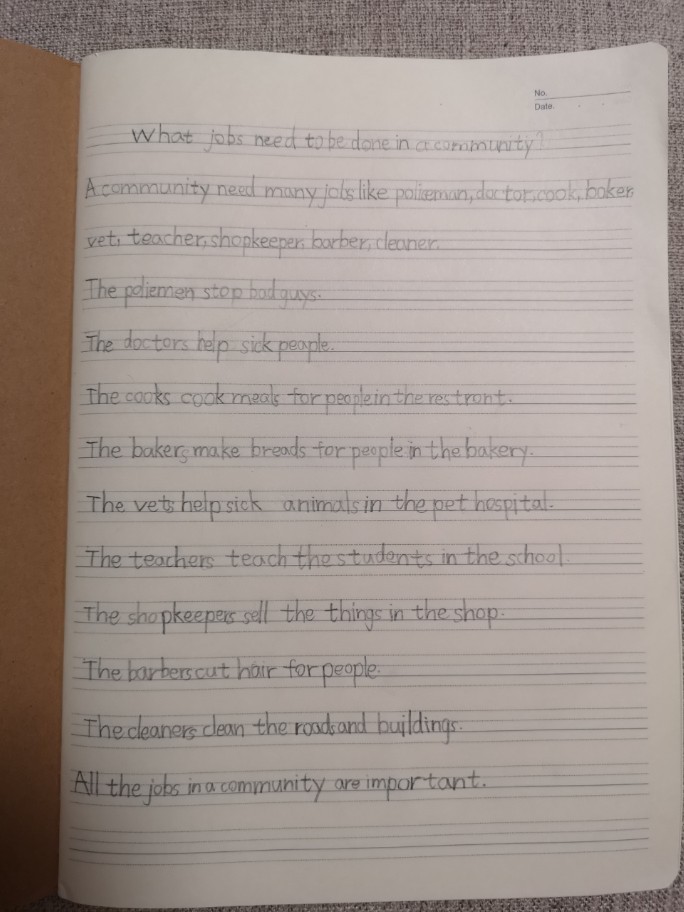 No.
Date.
What jobs need to be done in a community?
A community need many jobs like policeman, doctor, cook, baker,
vet, teacher, shopkeeper, barber, cleaner.
The poliemen stop bad guys.
The doctors help sick people.
The cooks cook meals for people in the restront.
The bakers make breads for people in the bakery.
The vets help sick animals in the pet hospital.
The teachers teach the students in the school.
The shopkeepers sell the things in the shop.
The barbers cut hair for people.
The cleaners clean the roads and buildings.
All the jobs in a community are important.